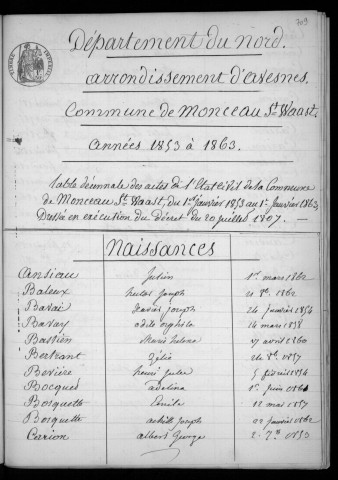 709
TIMBRE IMPÉRIAL
Département du nord.
arrondissement d'avesnes.
Commune de Monceau St. Waast.
années 1853 à 1863.
table décennale des actes de l'Etat Civil de la Commune
de Monceau St. Waast, du 1er Janvier 1853 au 1er Janvier 1863
Dressé en exécution du Décret du 20 juillet 1807.
Naissances
Ansieau Julien 1er mars 1862
Baleux Joseph 21 8bre 1862
Bavai Xavier Joseph 24 janvier 1854
Bavay 14 mars 1858
Bastien Marie 17 avril 1860
Bertrant Zélie 24 8bre 1857
Bevière henri Jules 5 février 1854
Bocquet adelina 1er juin 1860
Bosquette Emile 12 mai 1857
Bosquette achille Joseph 22 janvier 1862
Carion albert George 2 7bre 1853